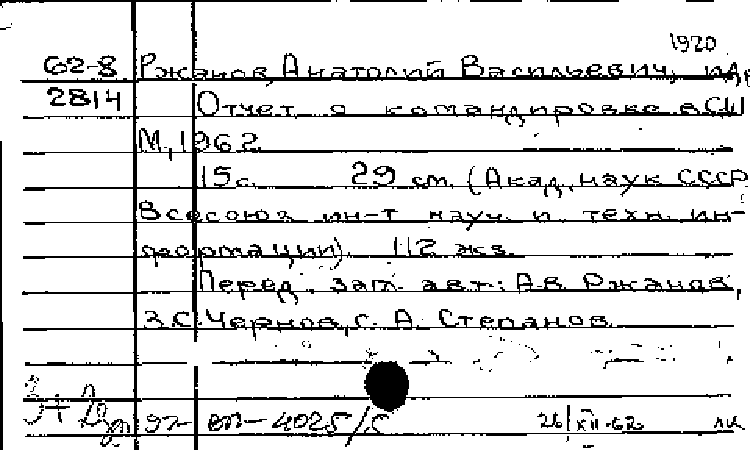 1920
62-8 Ржанов, Анатолий Васильевич, и др
2814 Отчет о командировке в США
М, 1962
15 с. 29 см. (Акад. наук СССР
Всесоюз ин-т науч. и техн. ин-
формации). 112 экз.
Перед. загл. авт.: А.В. Ржанов,
З.С. Чернов, Г. А. Степанов
97- вп-4025/5 26/XII-62